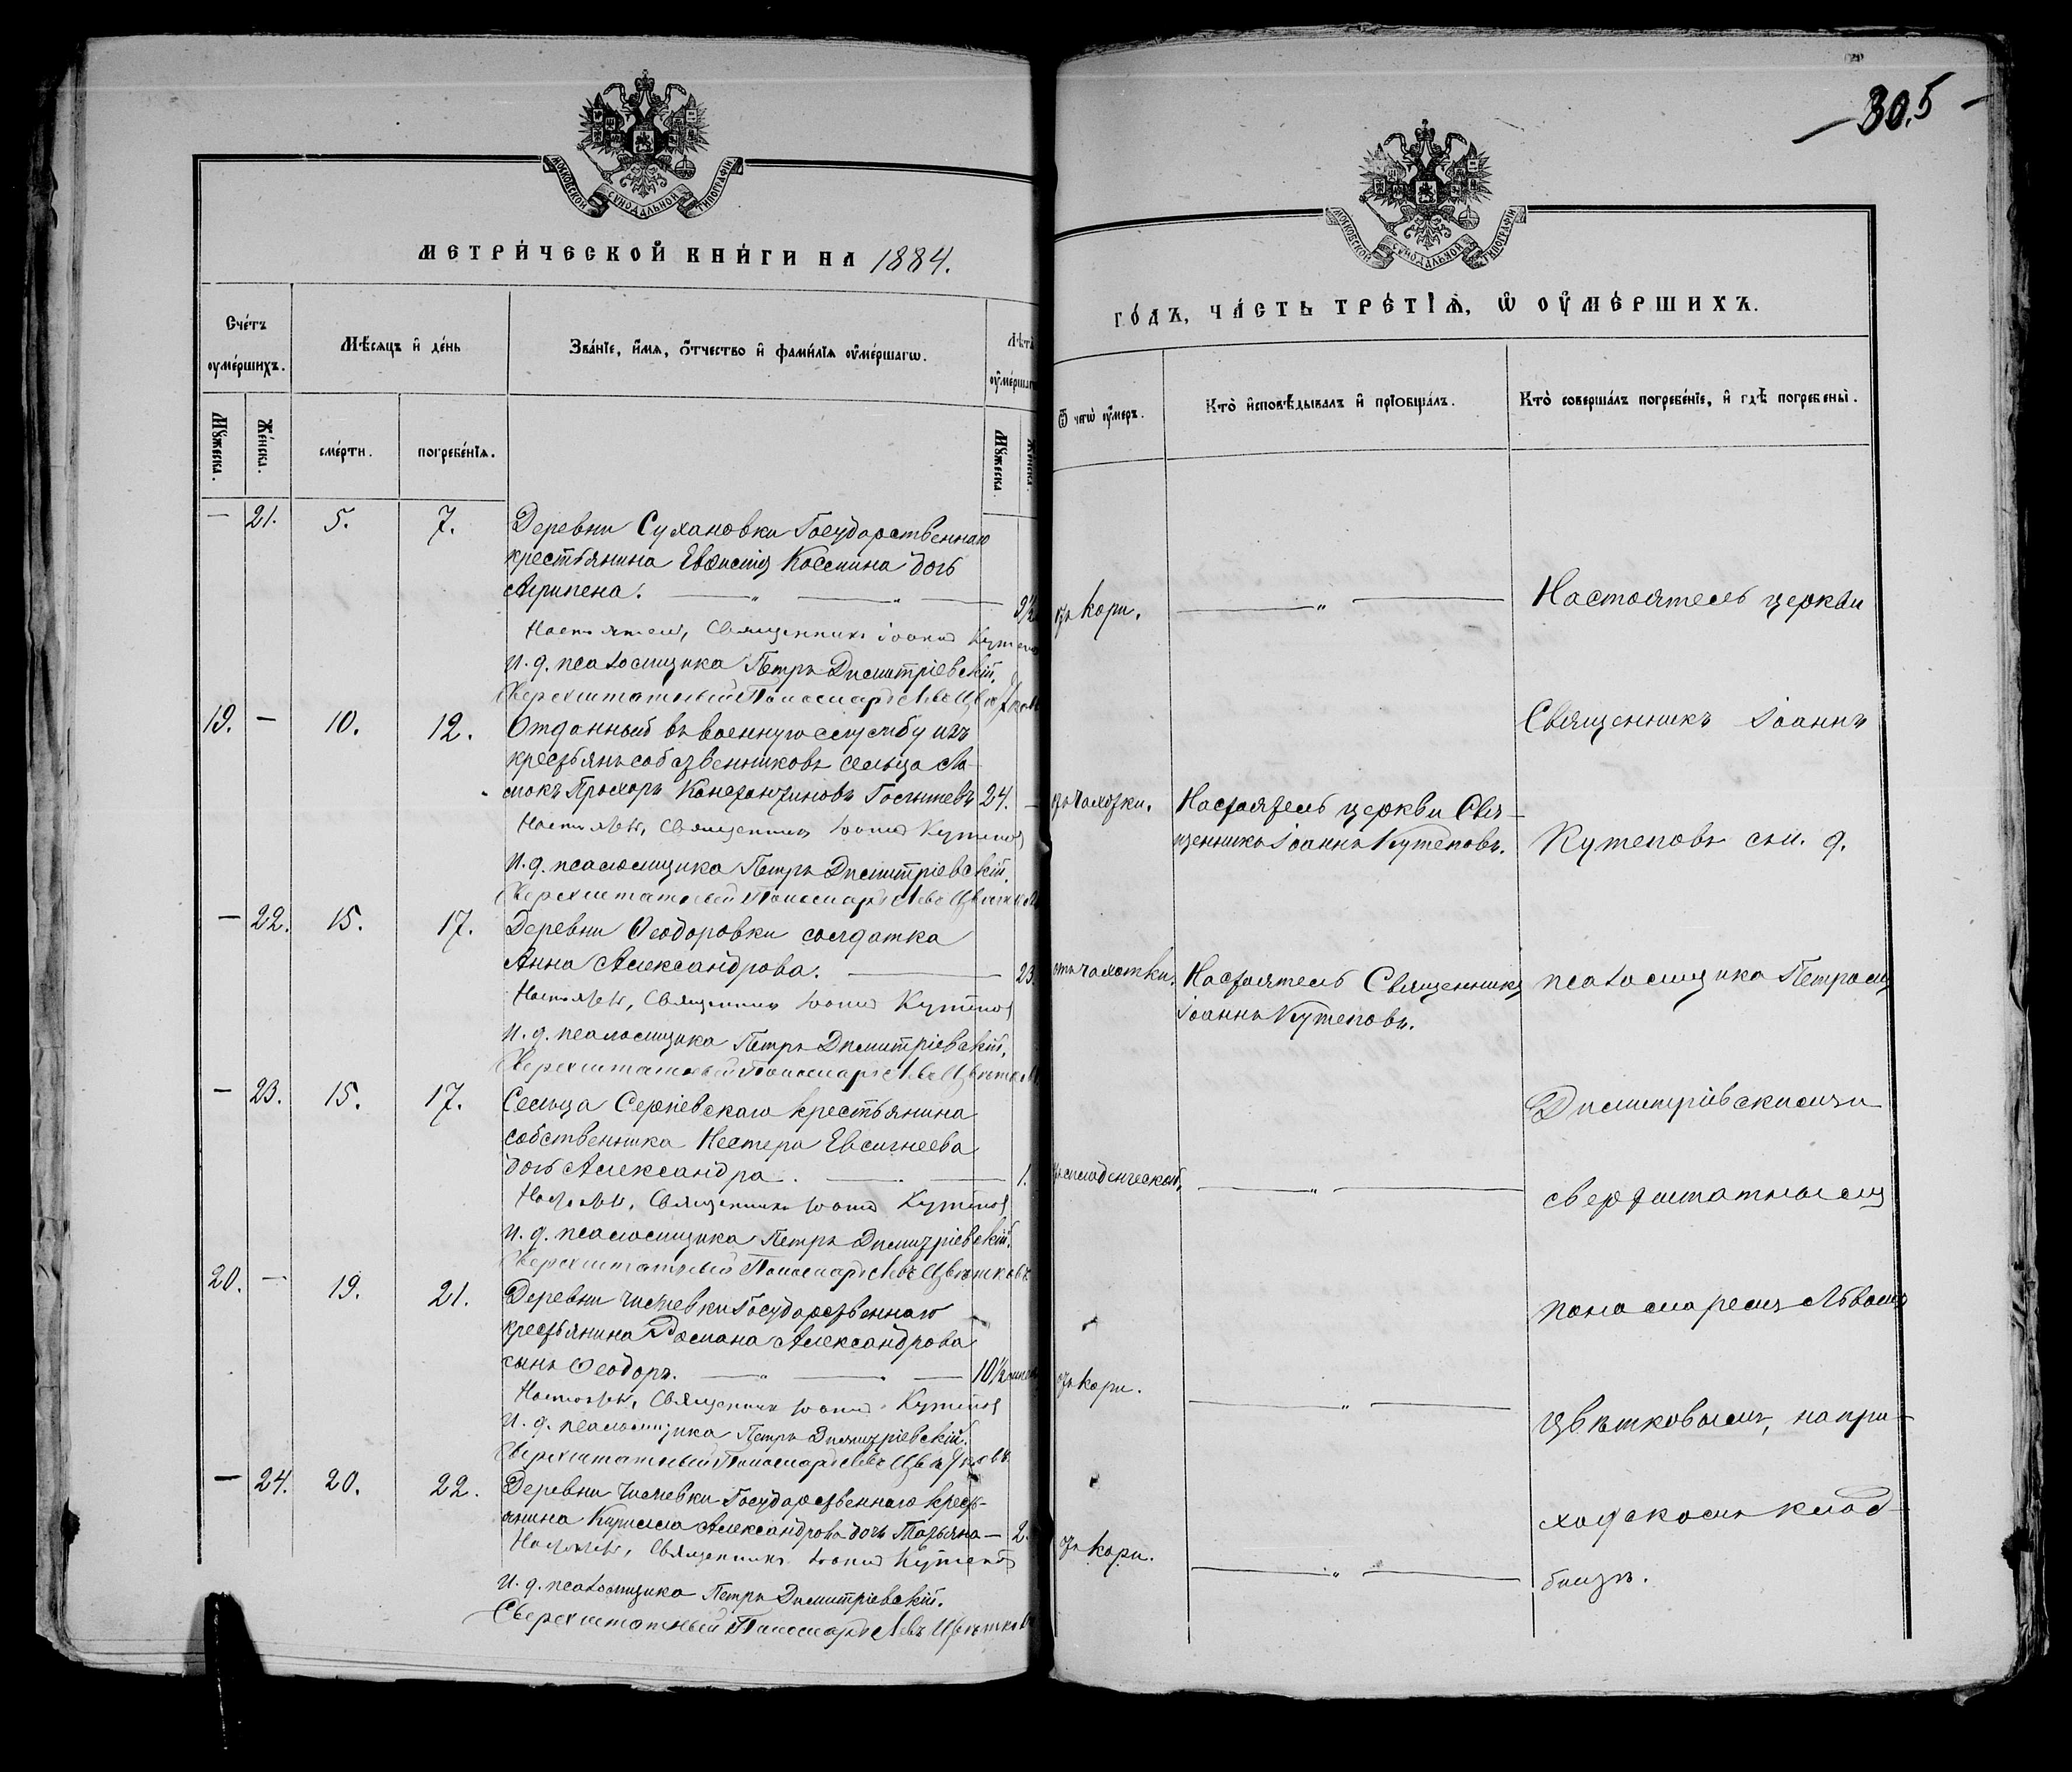 МОСКОВСКОЙ СѴНОДАЛЬНОЙ ТИПОГРАФІИ
МЕТРИ́ЧЕСКОЙ КНИ́ГИ НА 1884.
Счетъ оумершихъ.
Мѣсяцъ и день
Званіе, имя, отчество и фамилія оумершагѡ.
Лѣта оумершаг
Мꙋжеска.
Женска.
смерти.
погребенія.
Мꙋжеска.
Женска.
— 21. 5. 7. Деревни Сухановки Государственнаго
крестьянина Евѳимія Космина дочь
Агрипена. — „ — „ — 9½
Настоятель, Священникъ Іоаннъ Кутепо
И. д. псаломщика Петръ Димитріевскій.
Сверхштатный Пономарь Левъ Цвѣтков
19. — 10. 12. Отданный въ военную службу изъ
крестьянъ собственниковъ сельца Ла-
мокъ Прохоръ Константиновъ 24. —
Настоятель, Священникъ Іоаннъ Кутепов
И. д. псаломщика Петръ Димитріевскій.
Сверхштатный Пономарь Левъ Цвѣтков
— 22. 15. 17. Деревни Ѳеодоровки солдатка
Анна Александрова. — 23.
Настоятель, Священникъ Іоаннъ Кутепов
И. д. псаломщика Петръ Димитріевскій.
Сверхштатный Пономарь Левъ Цвѣтков
— 23. 15. 17. Сельца Сергіевскаго крестьянина
собственника Нестера Евсигнеева
дочь Александра. — 1.
Настоятель, Священникъ Іоаннъ Кутепов
И. д. псаломщика Петръ Димитріевскій.
Сверхштатный Пономарь Левъ Цвѣтковъ
20. — 19. 21. Деревни Государственнаго
крестьянина Романа Александрова
сынъ Ѳеодоръ. — „ — 10½
Настоятель, Священникъ Іоаннъ Кутепов
И. д. псаломщика Петръ Димитріевскій.
Сверхштатный Пономарь Левъ Цвѣтковъ
— 24. 20. 22. Деревни Государственнаго кресть-
янина Кирилла Александрова дочь Татьяна — 2.
Настоятель, Священникъ Іоаннъ Кутепов
И. д. псаломщика Петръ Димитріевскій.
Сверхштатный Пономарь Левъ Цвѣтков
— 305 —
МОСКОВСКОЙ СѴНОДАЛЬНОЙ ТИПОГРАФІИ
ГО́ДЪ, ЧА́СТЬ ТРЕ́ТІѦ, Ѡ ОУМЕ́РШИХЪ.
Ѿ чегѡ оумеръ.
Кто исповѣдывалъ и пріобщалъ.
Кто совершалъ погребеніе, и гдѣ погребены.
отъ кори. — „ — Настоятель церкви
Священникъ Іоаннъ
отъ чахотки. Настоятель церкви Свя-
щенникъ Іоаннъ Кутеповъ. Кутеповъ съ и. д.
отъ чахотки. Настоятель Священникъ псаломщика Петромъ
Іоаннъ Кутеповъ.
Димитріевскимъ и
отъ младенческой. — „ — сверхштатнымъ
пономаремъ Львомъ
отъ кори. — „ — Цвѣтковымъ, на при-
ходскомъ клад-
отъ кори. — „ — бищѣ.